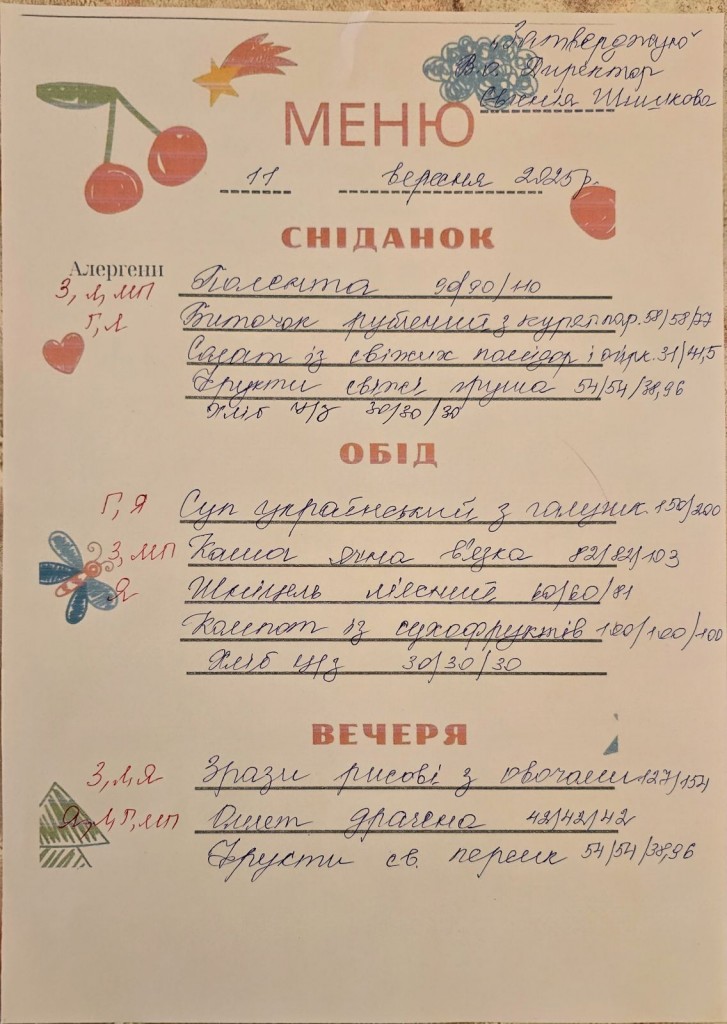 "Затверджую"
В.о. Директор
Євгенія Шишкова
МЕНЮ
11 вересня 2025 р.
СНІДАНОК
Алергени
З, Л, МП Полента 90/90/110
Г, Я Биточок рублений з курей пар. 58/58/77
Салат із свіжих помідор і огірк. 31/41,5
Фрукти свіжі груша 54/54/38,96
Хліб ц/з 30/30/30
ОБІД
Г, Я Суп український з галушк. 150/200
З, МП Каша ячна в'язка 82/82/103
Я Шніцель м'ясний 60/60/81
Компот із сухофруктів 100/100/100
Хліб ц/з 30/30/30
ВЕЧЕРЯ
З, Л, Я Зрази рисові з овочами 127/154
Я, Л, Г, МП Омлет драчена 42/42/42
Фрукти св. персик 54/54/38,96